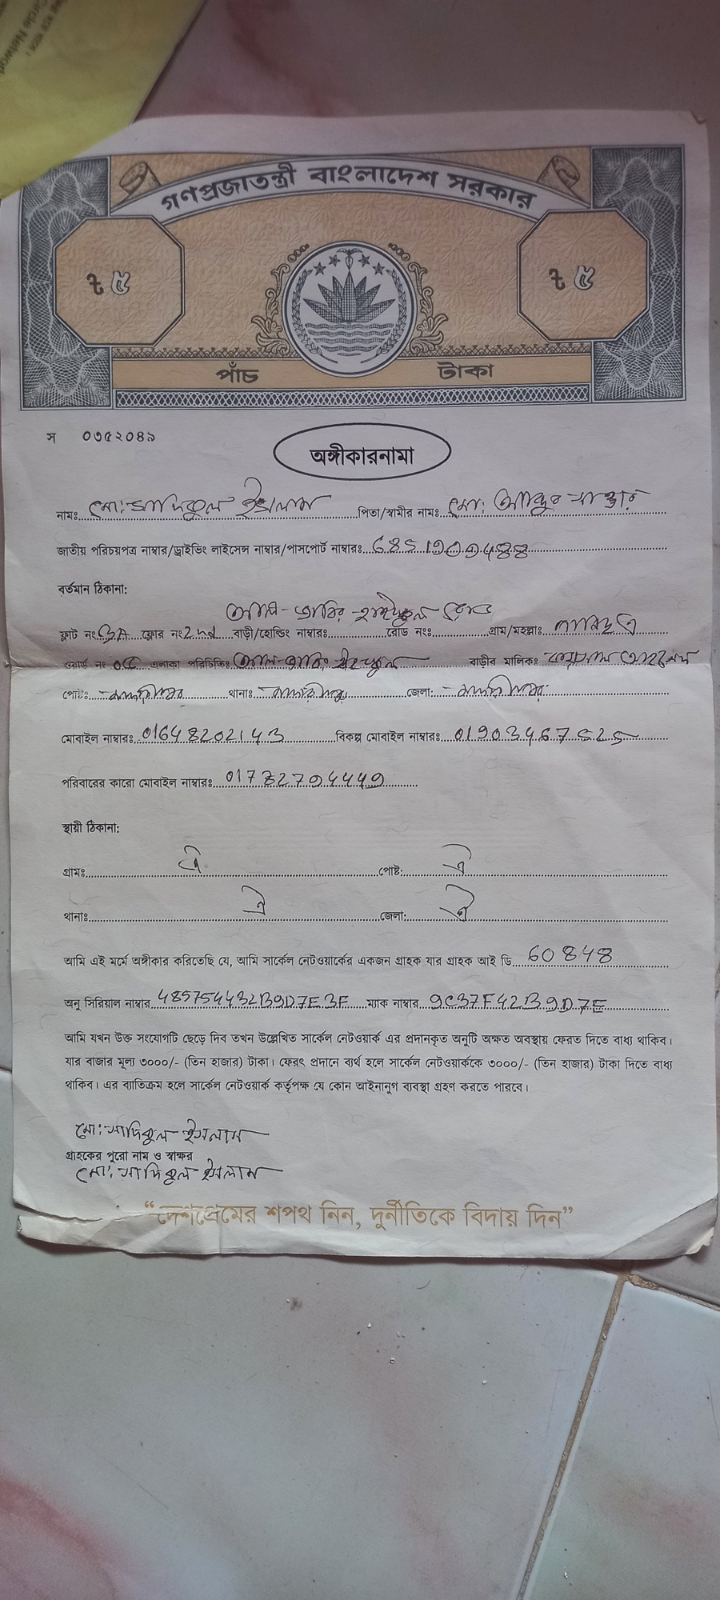 গণপ্রজাতন্ত্রী বাংলাদেশ সরকার
৳ ৫ ৳ ৫
পাঁচ টাকা
স ০৩৫২০৪৯
অঙ্গীকারনামা
নামঃ মো: সাদিকুল ইসলাম পিতা/স্বামীর নামঃ মো:
জাতীয় পরিচয়পত্র নাম্বার/ড্রাইভিং লাইসেন্স নাম্বার/পাসপোর্ট নাম্বারঃ
বর্তমান ঠিকানা:
রোড
ফ্লাট নংঃ 3A ফ্লোর নংঃ 2nd বাড়ী/হোল্ডিং নাম্বারঃ রোড নংঃ গ্রাম/মহল্লাঃ
ওয়ার্ড নং এলাকা পরিচিতিঃ বাড়ীর মালিকঃ
পোষ্টঃ থানাঃ জেলা:
মোবাইল নাম্বারঃ 01648202143 বিকল্প মোবাইল নাম্বারঃ
পরিবারের কারো মোবাইল নাম্বারঃ
স্থায়ী ঠিকানা:
গ্রামঃ ঐ পোষ্ট: ঐ
থানাঃ ঐ জেলা: ঐ
আমি এই মর্মে অঙ্গীকার করিতেছি যে, আমি সার্কেল নেটওয়ার্কের একজন গ্রাহক যার গ্রাহক আই ডি 60848
অনু সিরিয়াল নাম্বার 485754432B9D7E3F ম্যাক নাম্বার 9C37F42B9D7E
আমি যখন উক্ত সংযোগটি ছেড়ে দিব তখন উল্লেখিত সার্কেল নেটওয়ার্ক এর প্রদানকৃত অনুটি অক্ষত অবস্থায় ফেরত দিতে বাধ্য থাকিব।
যার বাজার মূল্য ৩০০০/- (তিন হাজার) টাকা। ফেরৎ প্রদানে ব্যর্থ হলে সার্কেল নেটওয়ার্ককে ৩০০০/- (তিন হাজার) টাকা দিতে বাধ্য
থাকিব। এর ব্যতিক্রম হলে সার্কেল নেটওয়ার্ক কর্তৃপক্ষ যে কোন আইনানুগ ব্যবস্থা গ্রহণ করতে পারবে।
মো: সাদিকুল ইসলাম
গ্রাহকের পুরো নাম ও স্বাক্ষর
মো: সাদিকুল ইসলাম
“দেশপ্রেমের শপথ নিন, দুর্নীতিকে বিদায় দিন”